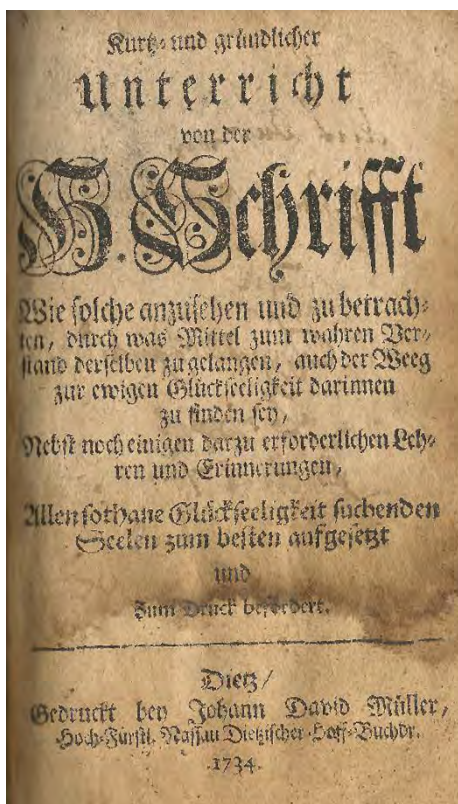 Kurtz- und gründlicher
Unterricht
von der
H. Schrifft
Wie solche anzusehen und zu betrach-
ten, durch was Mittel zum wahren Ver-
stand derselben zu gelangen, auch der Weeg
zur ewigen Glückseeligkeit darinnen
zu finden sey,
Nebst noch einigen darzu erforderlichen Leh-
ren und Erinnerungen,
Allen sothane Glückseeligkeit suchenden
Seelen zum besten aufgesetzt
und
Zum Druck befördert.
Dietz/
Gedruckt bey Johann David Müller,
Hoch-Fürstl. Nassau Dietzischer Hoff-Buchdr.
1734.